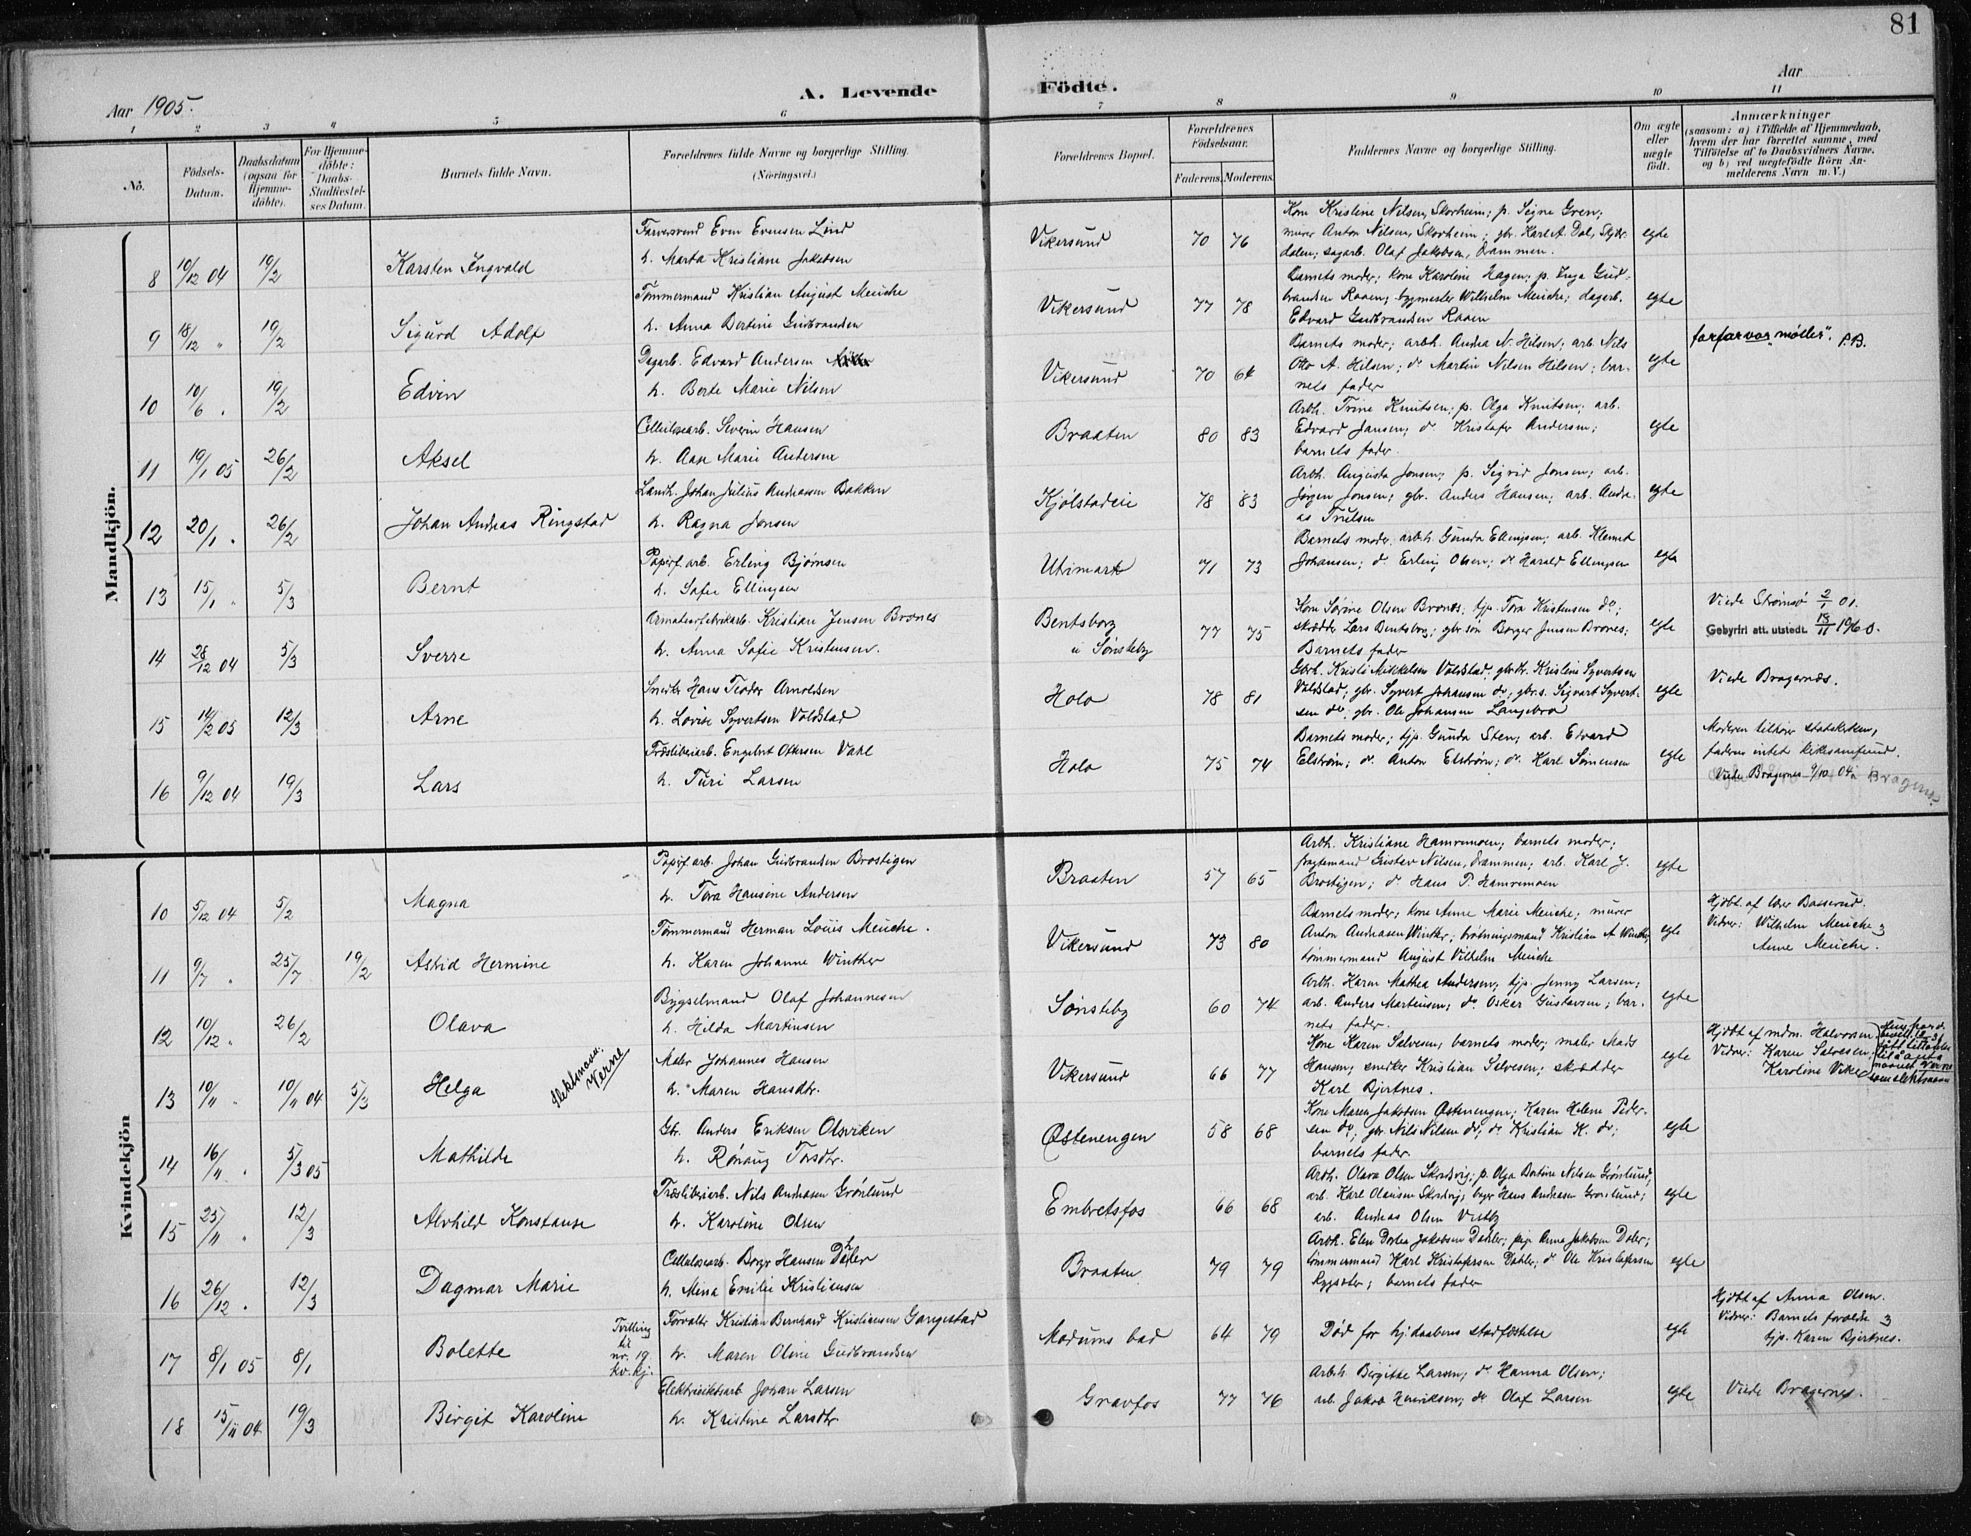 81
Aar 1905.
A. Levende Födte.
Aar
1 2 3 4 5 6 7 8 9 10 11
No.
Födsels-Datum.
Daabsdatum (ogsaa for Hjemme-döbte).
For Hjemme-döbte: Daabs-Stadfæstelses Datum.
Barnets fulde Navn.
Forældrenes fulde Navne og borgerlige Stilling. (Næringsvei.)
Forældrenes Bopæl.
Forældrenes Födselsaar.
Faderens. Moderens.
Faddernes Navne og borgerlige Stilling.
Om ægte eller uægte födt.
Anmærkninger
(saasom: a) i Tilfælde af Hjemmedaab, hvem der har forrettet samme, med Tilföielse af to Daabsvidners Navne, og b) ved uægtefödte Börn Anmelderens Navn m. V.)
Mandkjön.
8 10/12 04 19/2 Karsten Ingvald
Farversvend Even Evensen Lind
h. Marta Kristiane Jakobsen
Vikersund 70 76
Kone Kristine Nilsen, Skorheim; p. Signe Gren;
murer Anton Nilsen, Skorheim; gbr. Karl A. Dal,
dalen; sagarb. Olaf Jakobsen, Drammen.
egte
9 18/12 " 19/2 Sigurd Adolf
Tømmermand Kristian August Meuche
h. Anna Bertine Gudbrandsen
Vikersund 77 78
Barnets moder; kone Karoline Hagen; p. Inga Gud-
brandsen Raaen; bygmester Wilhelm Meuche; dagarb.
Edvard Gudbrandsen Raaen
egte
10 10/6 " 19/2 Edvin
Dagarb. Edvard Andersen
h. Berte Marie Nilsen
Vikersund 70 64
Barnets moder; arbk. Andrea N. Hilsen; arb. Nils
Otto A. Hilsen; do Martin Nilsen Hilsen; bar-
nets fader
egte
farfar var "møller". P.B.
11 19/1 05 26/2 Aksel
Cellulosearb. Severin Hansen
h. Aase Marie Andersen
Braaten 80 83
Arbk. Trine Knutsen; p. Olga Knutsen; arb.
Edvard Jansen; do Kristofer Andersen;
barnets fader.
egte
12 20/1 " 26/2 Johan Andreas Ringstad
Landh. Johan Julius Andreassen Bakken
h. Ragna Jonsen
Kjølstadeie 78 83
Arbk. Augusta Jonsen; p. Sigrid Jonsen; arb.
Jørgen Jonsen; gbr. Anders Hansen; arb. Andre-
as Trulsen
egte
13 15/1 " 5/3 Bernt
Papirf.arb. Erling Bjørnsen
h. Sofie Ellingsen
Utrimark 71 73
Barnets moder; arbk. Gunda Ellingsen; arb. Klemet
Johansen; do Erling Olsen; do Harald Ellingsen
egte
14 28/12 04 5/3 Sverre
Armaturfabrikarb. Kristian Jensen Brones
h. Anna Sofie Kristensen.
Bentsborg
u Sønsteby
77 75
Kone Sørine Olsen Brones; tjp. Tora Kristensen do;
skrædder Lars Bentsborg; gbr søn Borger Jensen Brones;
Barnets fader
egte
Viede Strømsø 2/1 01.
Gebyrfri att. utstedt. 18/11 1960.
15 14/2 05 12/3 Arne
Snedker Hans Teodor Arnoldsen
h. Lovise Syvertsen Voldstad
Holo 78 81
Gbrk. Kristi Mikkelsen Voldstad; gbrdtr. Kristine Syvertsen
Voldstad; gbr. Syvert Johansen do; gbr.s. Sigvart Syvert-
sen do; gbr. Ole Johansen Langebro
egte
Viede Bragernæs.
16 9/12 04 19/3 Lars
Træsliberiarb. Engebret Ottersen Vahl
h. Turi Larsen
Holo 75 74
Barnets moder; tjp. Gunda Sten; arb. Edvard
Elstrøm; do Anton Elstrøm; do Karl Simensen
egte
Moderen tilhører statskirken,
faderen intet kirkesamfund.
Viede Bragernes 9/10 04
Kvindekjön
10 5/12 04 5/2 Magna
Papirf.arb. Johan Gudbrandsen Brostigen
h. Tora Hansine Andersen
Braaten 57 65
Arbk. Kristiane Hamremoen; barnets moder;
fragtemand Gustav Nilsen, Drammen; arb. Karl J.
Brostigen; do Hans P. Hamremoen
egte
11 9/7 " 25/7 19/2 Astrid Hermine
Tømmermand Herman Louis Meuche.
h. Karen Johanne Winther
Vikersund 73 80
Barnets moder; kone Anne Marie Meuche; murer
Anton Andreasen Winther; brøtningsmand Kristian A Winther;
tømmermand August Vilhelm Meuche
egte
Hjdbt. af Iver Basserud.
Vidner: Wilhelm Meuche &
Anne Meuche.
12 10/12 " 26/2 Olava
Bygselmand Olaf Johannesen
h. Hilda Martinsen
Sønsteby 60 74
Arbk. Karen Mathea Andersen; tjp. Jenny Larsen;
arb. Anders Martinsen; do Oskar Gustavsen; bar-
nets fader.
egte
13 10/11 " 10/11 04 5/3 Helga
Slektsnavn: Verne
Maler Johannes Hansen
h. Maren Hansdtr.
Vikersund 66 77
Kone Karen Salvesen; barnets moder; maler Mads
Hansen; snedker Kristian Selvesen; skrædder
Karl Bjertnes.
egte
Hjdbt af mdm. Halvorsen.
Vidner: Karen Salvesen;
Karoline Vike
14 16/11 " 5/3 05 Mathilde
Gbr. Anders Eriksen Olsviken
h. Rønaug Torsdtr.
Østenengen 58 68
Kone Maren Jakobsen Østenengen; Karen Helene Peder-
sen do; gbr Nils Nilsen do; do Kristian H. do;
barnets fader.
egte
15 25/11 " 12/3 Alvhild Konstanse
Træsliberiarb. Nils Andreasen Grønlund
h. Karoline Olsen
Embretsfos 66 68
Arbk. Olava Olsen Skredsvig; p. Olga Bertine Nilsen Grønlund;
arb. Karl Olausen Skredsvig; bager Hans Andreasen Grønlund;
arb. Andreas Olsen Vestby
egte
16 26/12 " 12/3 Dagmar Marie
Cellulosearb. Borger Hansen Dahler
h. Mina Emilie Kristiansen
Braaten 79 79
Arbk. Elen Dortea Jakobsen Dahler; pige Anna Jakobsen Daler;
tømmermand Karl Kristofersen Dahler; do Ole Kristofersen
Rygseter; barnets fader
egte
17 8/1 05 8/1 Bolette
Tvilling
til
nr. 19
kv.kj.
Forvalter Kristian Bernhard Kristiansen Gangestad
h. Maren Oline Gudbrandsen
Modums bad 64 79
Død før hj.daabens stadfæstelse
egte
Hjdbt af Anna Olsen.
Vidner: Barnets forældre &
tjp. Karen Bjertnes.
18 15/11 04 19/3 Birgit Karoline
Elektricitetsarb Johan Larsen
h. Kristine Larsdtr.
Gravfos 77 76
Arbk. Birgitte Larsen; do Hanna Olsen;
arb. Jakob Henriksen; do Olaf Larsen
egte
Viede Bragernes.